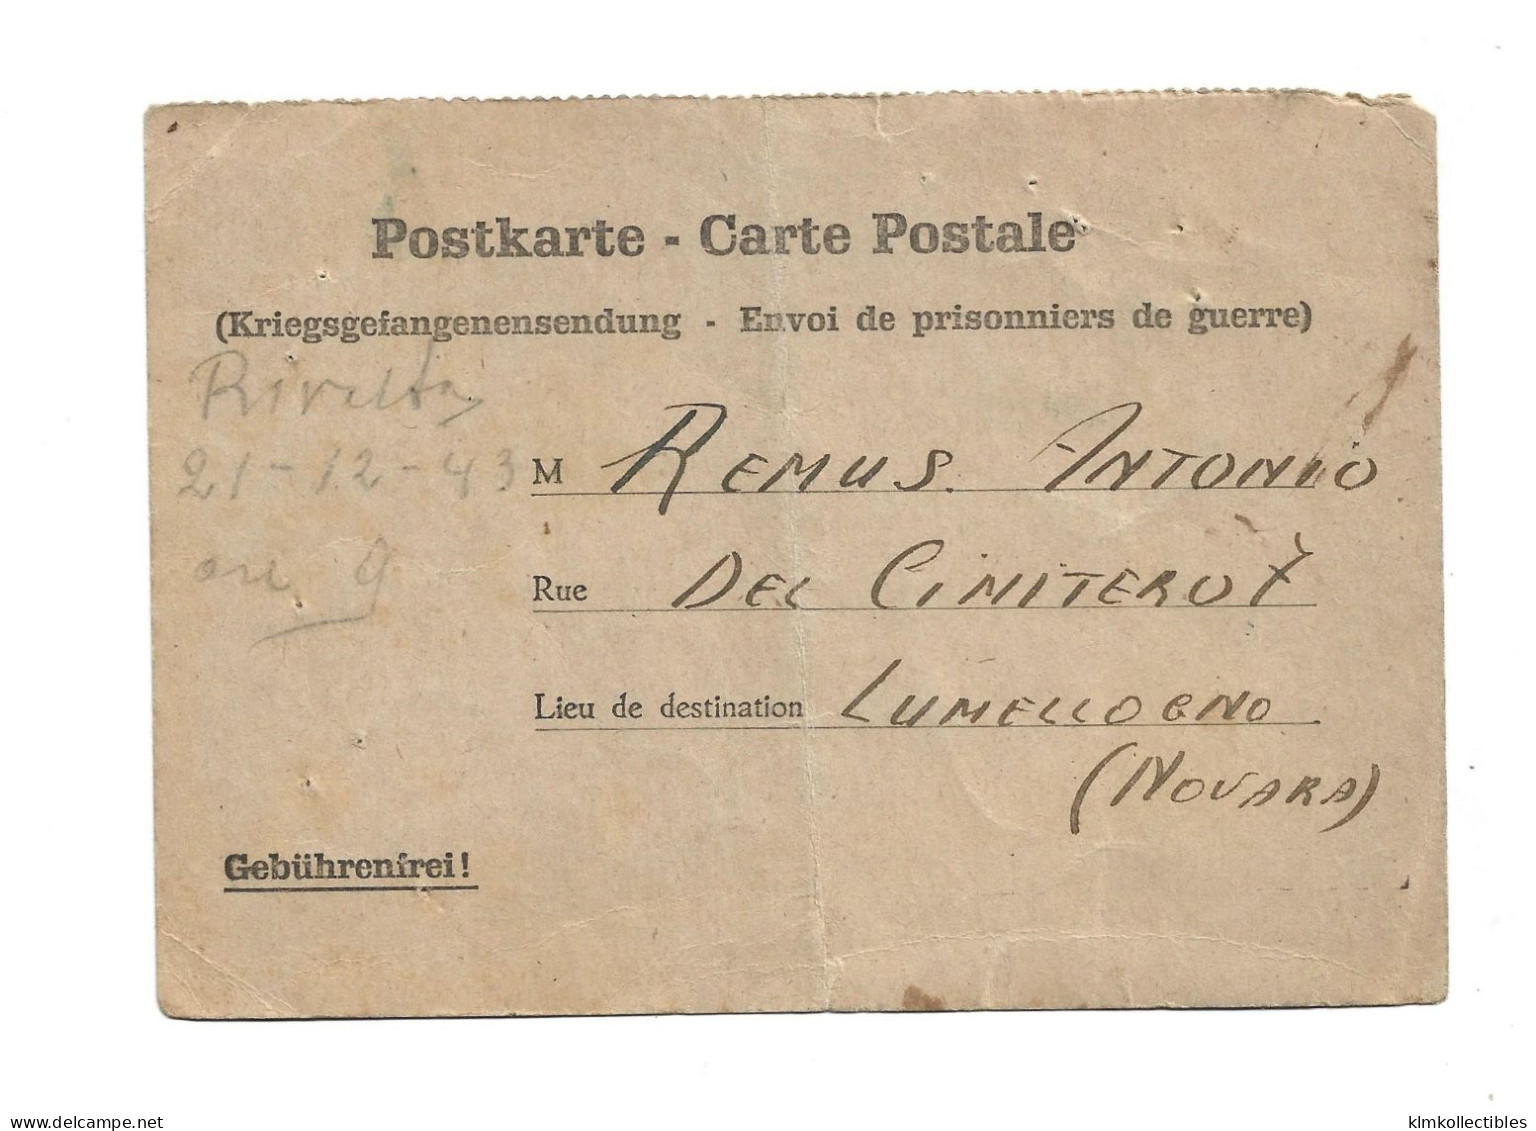 Postkarte - Carte Postale
(Kriegsgefangenensendung - Envoi de prisonniers de guerre)
Rivalta
21-12-43
ore 9
M REMUS. ANTONIO
Rue DEL CIMITERO 7
Lieu de destination LUMELLOGNO.
(NOVARA)
Gebührenfrei!
delcampe.net
klmkollectibles